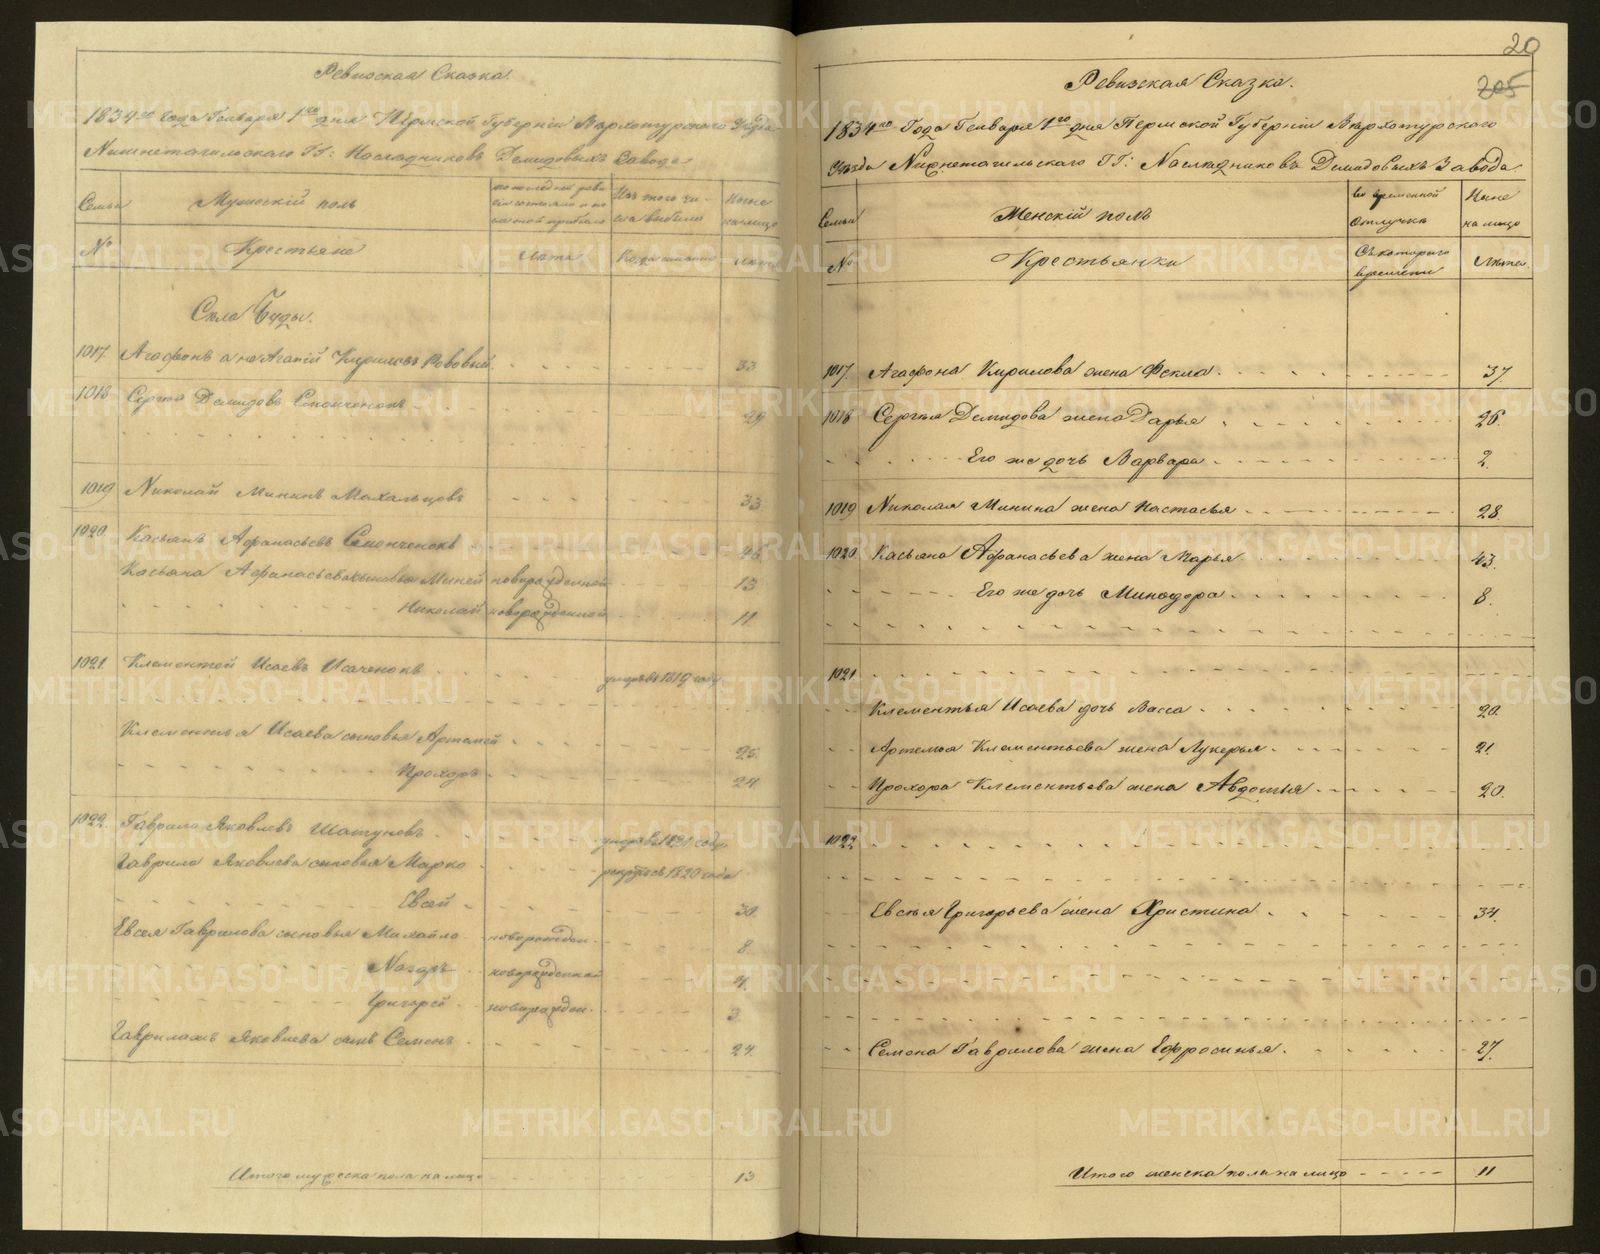 Ревизская Сказка.
1834го года Генваря 1го дня Пермской Губернiи Верхотурского Уезда
Нижнетагильского ГГ: Наследниковъ Демидовыхъ Завода
Семьи
Мужескiй полъ
Изъ того числа выбыло
Ныне на лицо
№
Крестьяне
Лета
Когда именно
Лета
Села Буды.
1017. Агафонъ а не Агапiй Кириловъ 33
1018 Сергей Демидовъ Симонченокъ 29
1019 Николай Мининъ Махальцовъ 33
1020. Касьянъ Афанасьевъ Симонченокъ 46.
Касьяна Афанасьева сыновья Миней новорожденной 13
Николай новорожденной 11
1021. Клементей Исаевъ Исаченокъ умеръ въ 1819 году
Клементья Исаева сыновья Артемей 25.
Прохоръ 24
1022. Гаврило Яковлевъ Шатуновъ умеръ въ 1821 году
Гаврило Яковлева сыновья Марко 1820 года
Евсей 30.
Евсея Гаврилова сыновья Михайло новорожден. 8.
Назаръ новорожденной 4.
Григорей новорожден. 3.
Гаврилы Яковлева сынъ Семенъ 24.
Итого мужеска пола на лицо 13
20
205
Ревизская Сказка.
1834го Года Генваря 1го дня Пермской Губернiи Верхотурского
Уезда Нижнетагильского ГГ: Наследниковъ Демидовыхъ Завода
Семьи
Женскiй полъ
во временной отлучке
Ныне на лицо
№
Крестьянки
Съ которого времени
Лета.
1017. Агафона Кирилова жена Фекла. 37
1018 Сергея Демидова жена Дарья 26.
Его же дочь Варвара 2.
1019 Николая Минина жена Настасья 28.
1020. Касьяна Афанасьева жена Марья 43.
Его же дочь Минодора 8.
1021
Клементья Исаева дочь Васса 20.
Артемья Клементьева жена Лукерья 21.
Прохора Клементьева жена Авдотья 20.
1022
Евсея Григорьева жена Христина 34.
Семена Гаврилова жена Ефросинья. 27.
Итого женска пола на лицо 11
METRIKI.GASO-URAL.RU